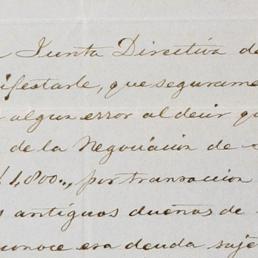 Junta Directiva de
ifestarle, que segurame
algun error al decir qu
de la Negociación de
$1,800.., por transaccion
antiguos dueños de
conoce esa deuda suje